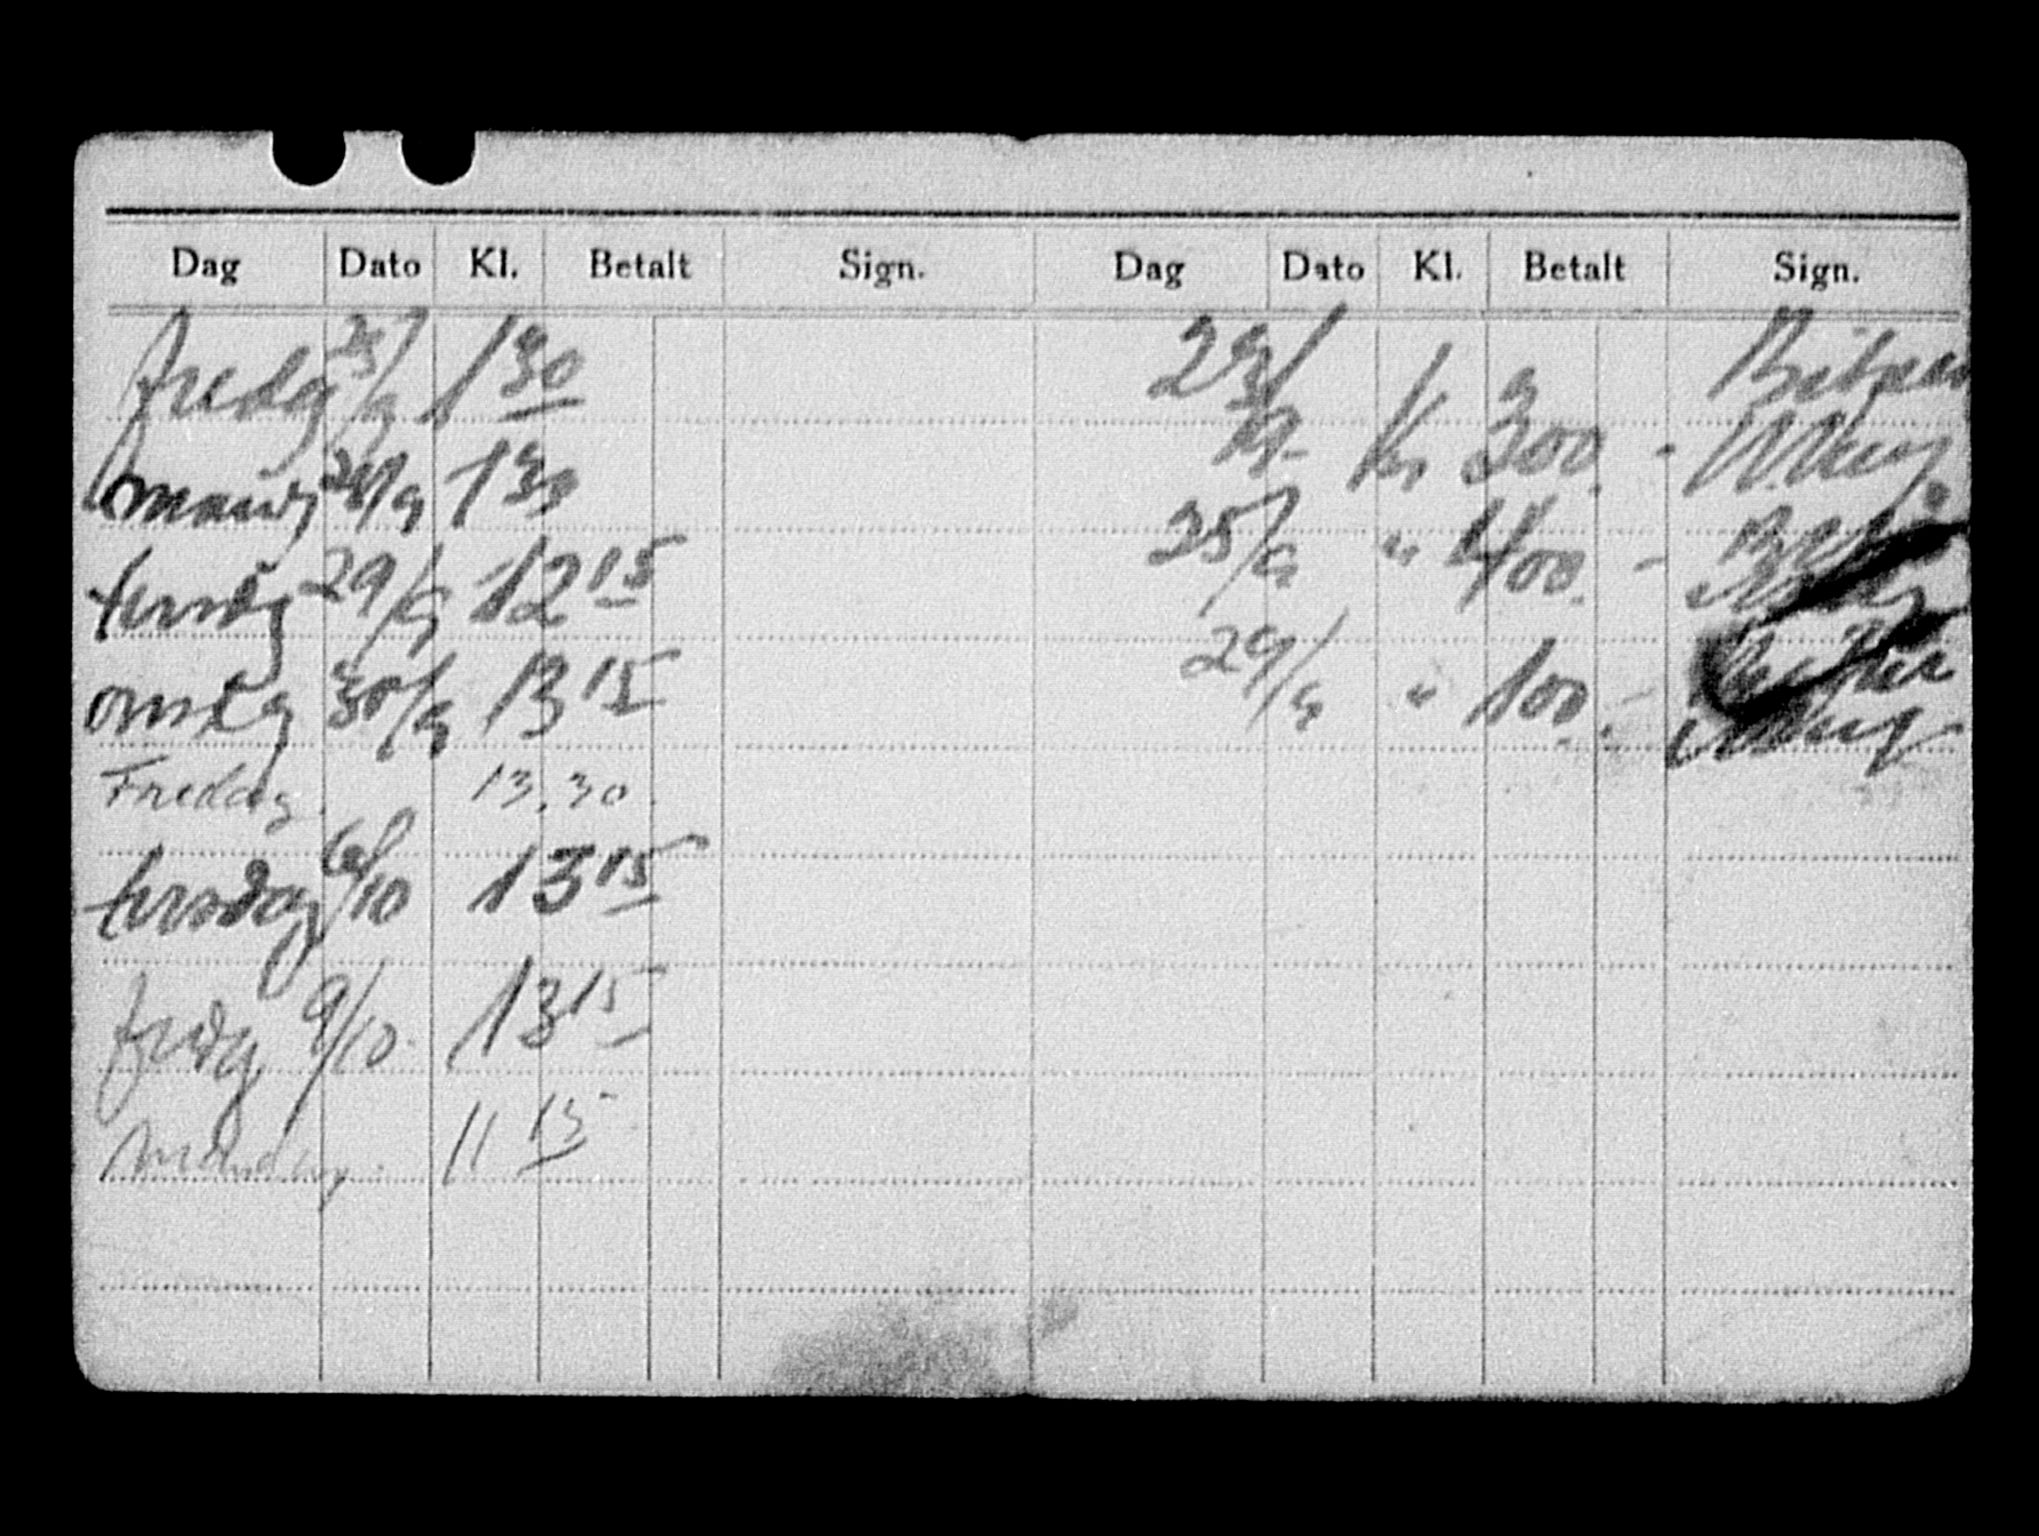 Dag Dato Kl. Betalt Sign. Dag Dato Kl. Betalt Sign.
fredag 25/9 1 30
mandag 28/9 1 30
tirsdag 29/9 12 15
onsdag 30/9 13 15
Fredag. 13.30.
tirsdag 6/10 13 15
fredag 9/10 13 15
Mandag. 11 15
23/9- Kr 300. -
25/9 " 400. -
29/9 " 100. -